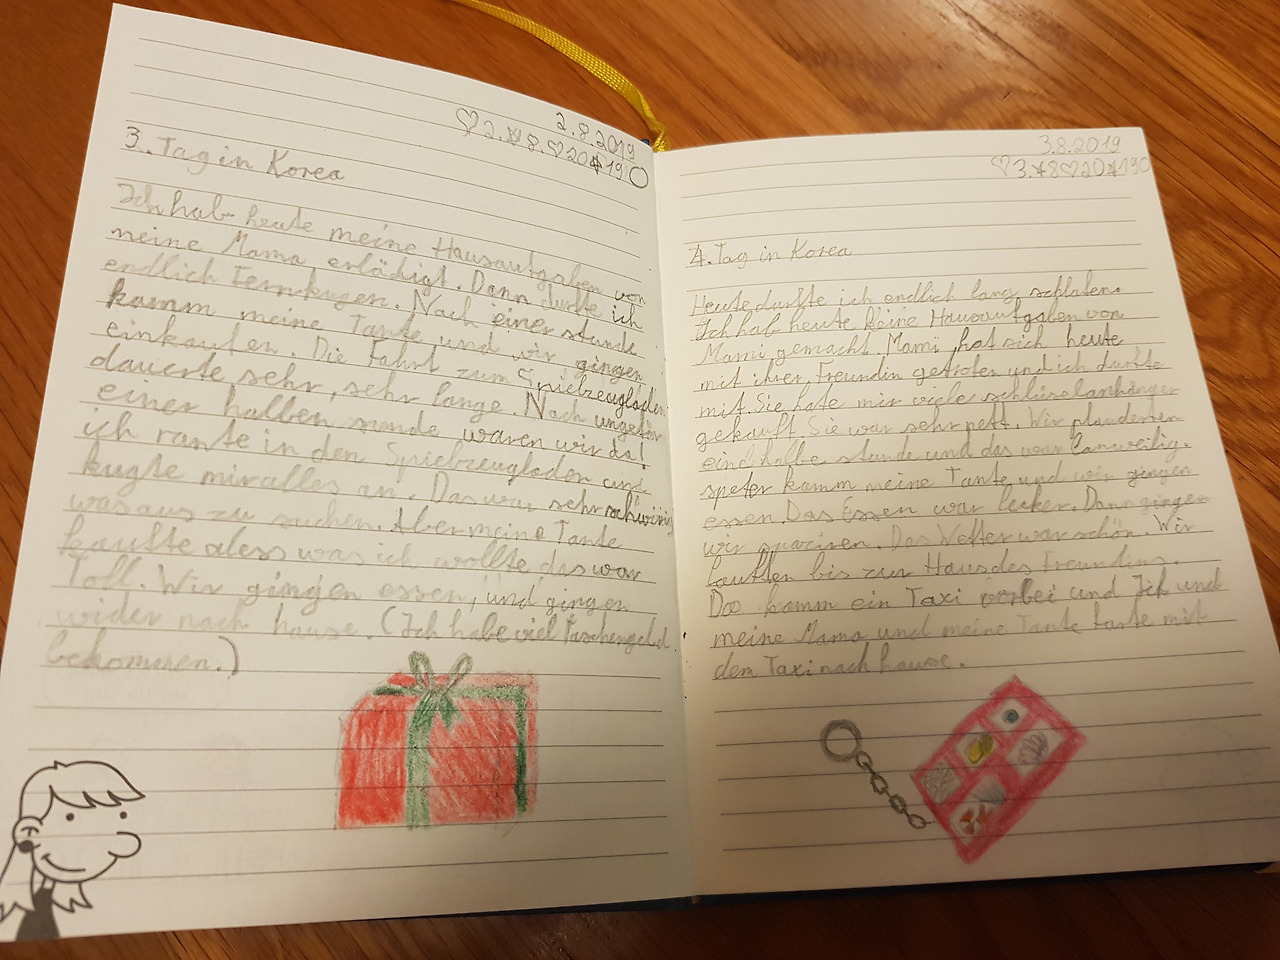 2.8.2019
♡2.☆8.♡20☆19○
3. Tag in Korea
Ich hab heute meine Hausaufgaben von
meine Mama erlädigt. Dann durfte ich
endlich Fernkugen. Nach einer stunde
kamm meine Tante und wir gingen
einkaufen. Die Fahrt zum Spielzeugladen
dauerte sehr, sehr lange. Nach ungefär
einer halben stunde waren wir da!
ich rante in den Spielzeugladen und
kugte mir alles an. Das war sehr schwirig
was aus zu suchen. Aber meine Tante
kaufte aless was ich wollte das war
Toll. Wir gingen essen, und gingen
wider nach hause. (Ich habe viel Taschengeld
bekommen.)
3.8.2019
♡3.☆8♡20☆19○
4. Tag in Korea
Heute durfte ich endlich lang schlafen.
Ich hab heute keine Hausaufgaben von
Mami gemacht. Mami hat sich heute
mit ihrer Freundin getrofen und ich durfte
mit. Sie hate mir viele schlüselanhänger
gekauft. Sie war sehr nett. Wir plauderten
eind halbe stunde und das war Lanweilig.
speter kamm meine Tante und wir gingen
essen. Das Essen war lecker. Dann gingen
wir spaziren. Das Wetter war schön. Wir
lauften bis zur Haus des Freundins.
Doo kamm ein Taxi vorbei und Ich und
meine Mama und meine Tante furte mit
dem Taxi nach hause.